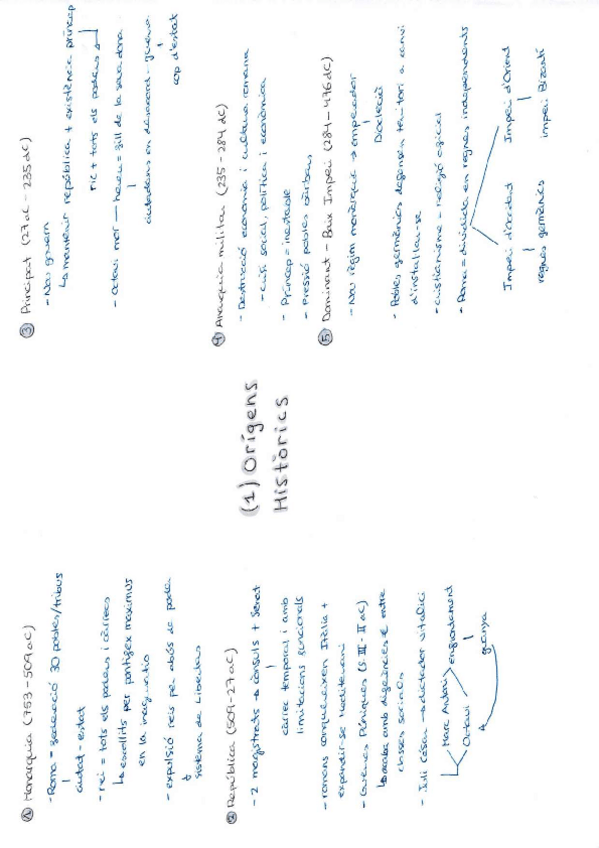 (1) Orígens
Històrics
① Monarquia (753-509 aC)
- Roma = federació 30 pobles/tribus
ciutat-estat
- rei = tots els poders i càrrecs
↳ escollits per pontífex maximus
en la inauguratio
- expulsió reis per abús de poder
sistema de llibertats
② República (509-27 aC)
- 2 magistrats → cònsuls + Senat
càrrec temporal i amb
limitacions funcionals
- romans conquereixen Itàlia +
expandir-se Mediterrani
- Guerres Púniques (s. III - II aC)
↳ acaba amb diferències € entre
classes socials
- Juli César → dictador vitalici
Marc Antoni
Octavi
enfrontament
guanya
③ Principat (27 aC - 235 dC)
- Nou govern
↳ mantenir república + existència príncep
ric + tots els poders
- Octavi mor — hereu = fill de la seva dona
ciutadans en desacord - guerra
cop d'estat
④ Anarquia militar (235-284 dC)
- Destrucció economia i cultura romana
- crisi social, política i econòmica
- Príncep = inestable
- Pressió pobles bàrbars
⑤ Dominant - Baix Imperi (284-476 dC)
- Nou règim monàrquic → emperador
Dioclecià
- Pobles germànics defensen territori a canvi
d'instal·lar-se
- cristianisme - religió oficial
- Roma = dividida en regnes independents
Imperi d'Occident Imperi d'Orient
regnes germànics imperi Bizantí